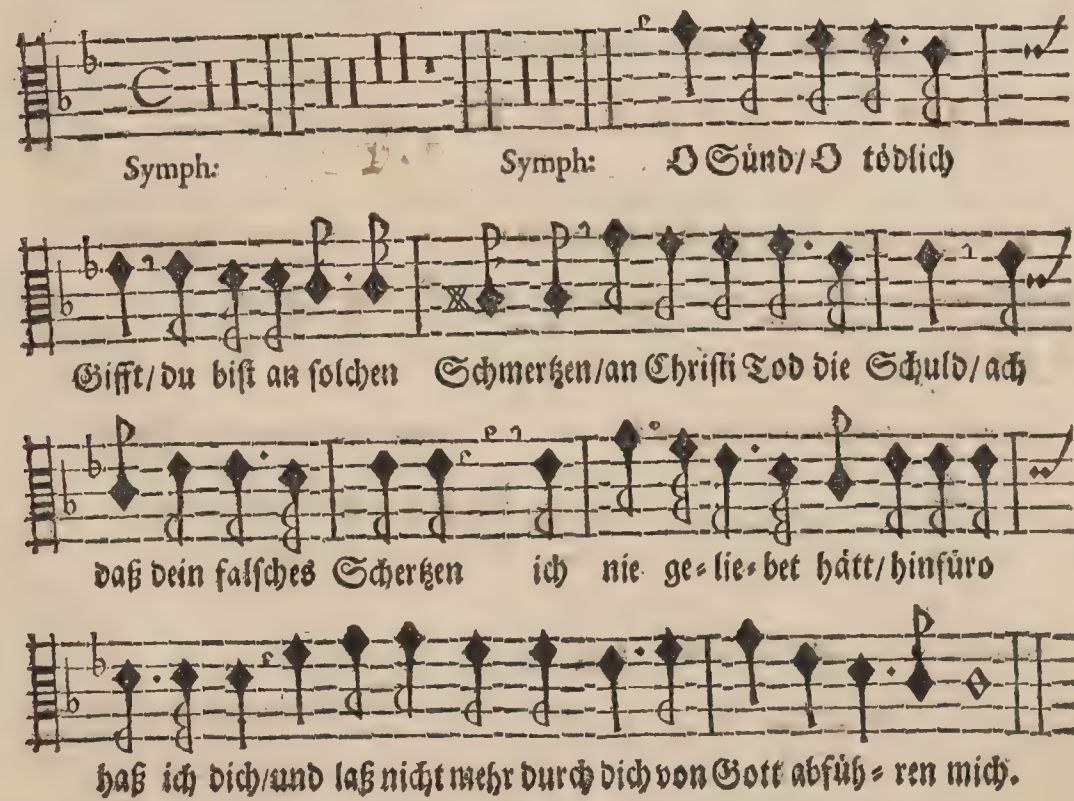 Symph: Symph: O Sünd/ O tödlich
Gifft/ du bist an solchen Schmertzen/ an Christi Tod die Schuld/ ach
daß dein falsches Schertzen ich nie ge⸗ lie⸗ bet hätt/ hinfüro
haß ich dich/ und laß nicht mehr durch dich von Gott abfüh⸗ ren mich.